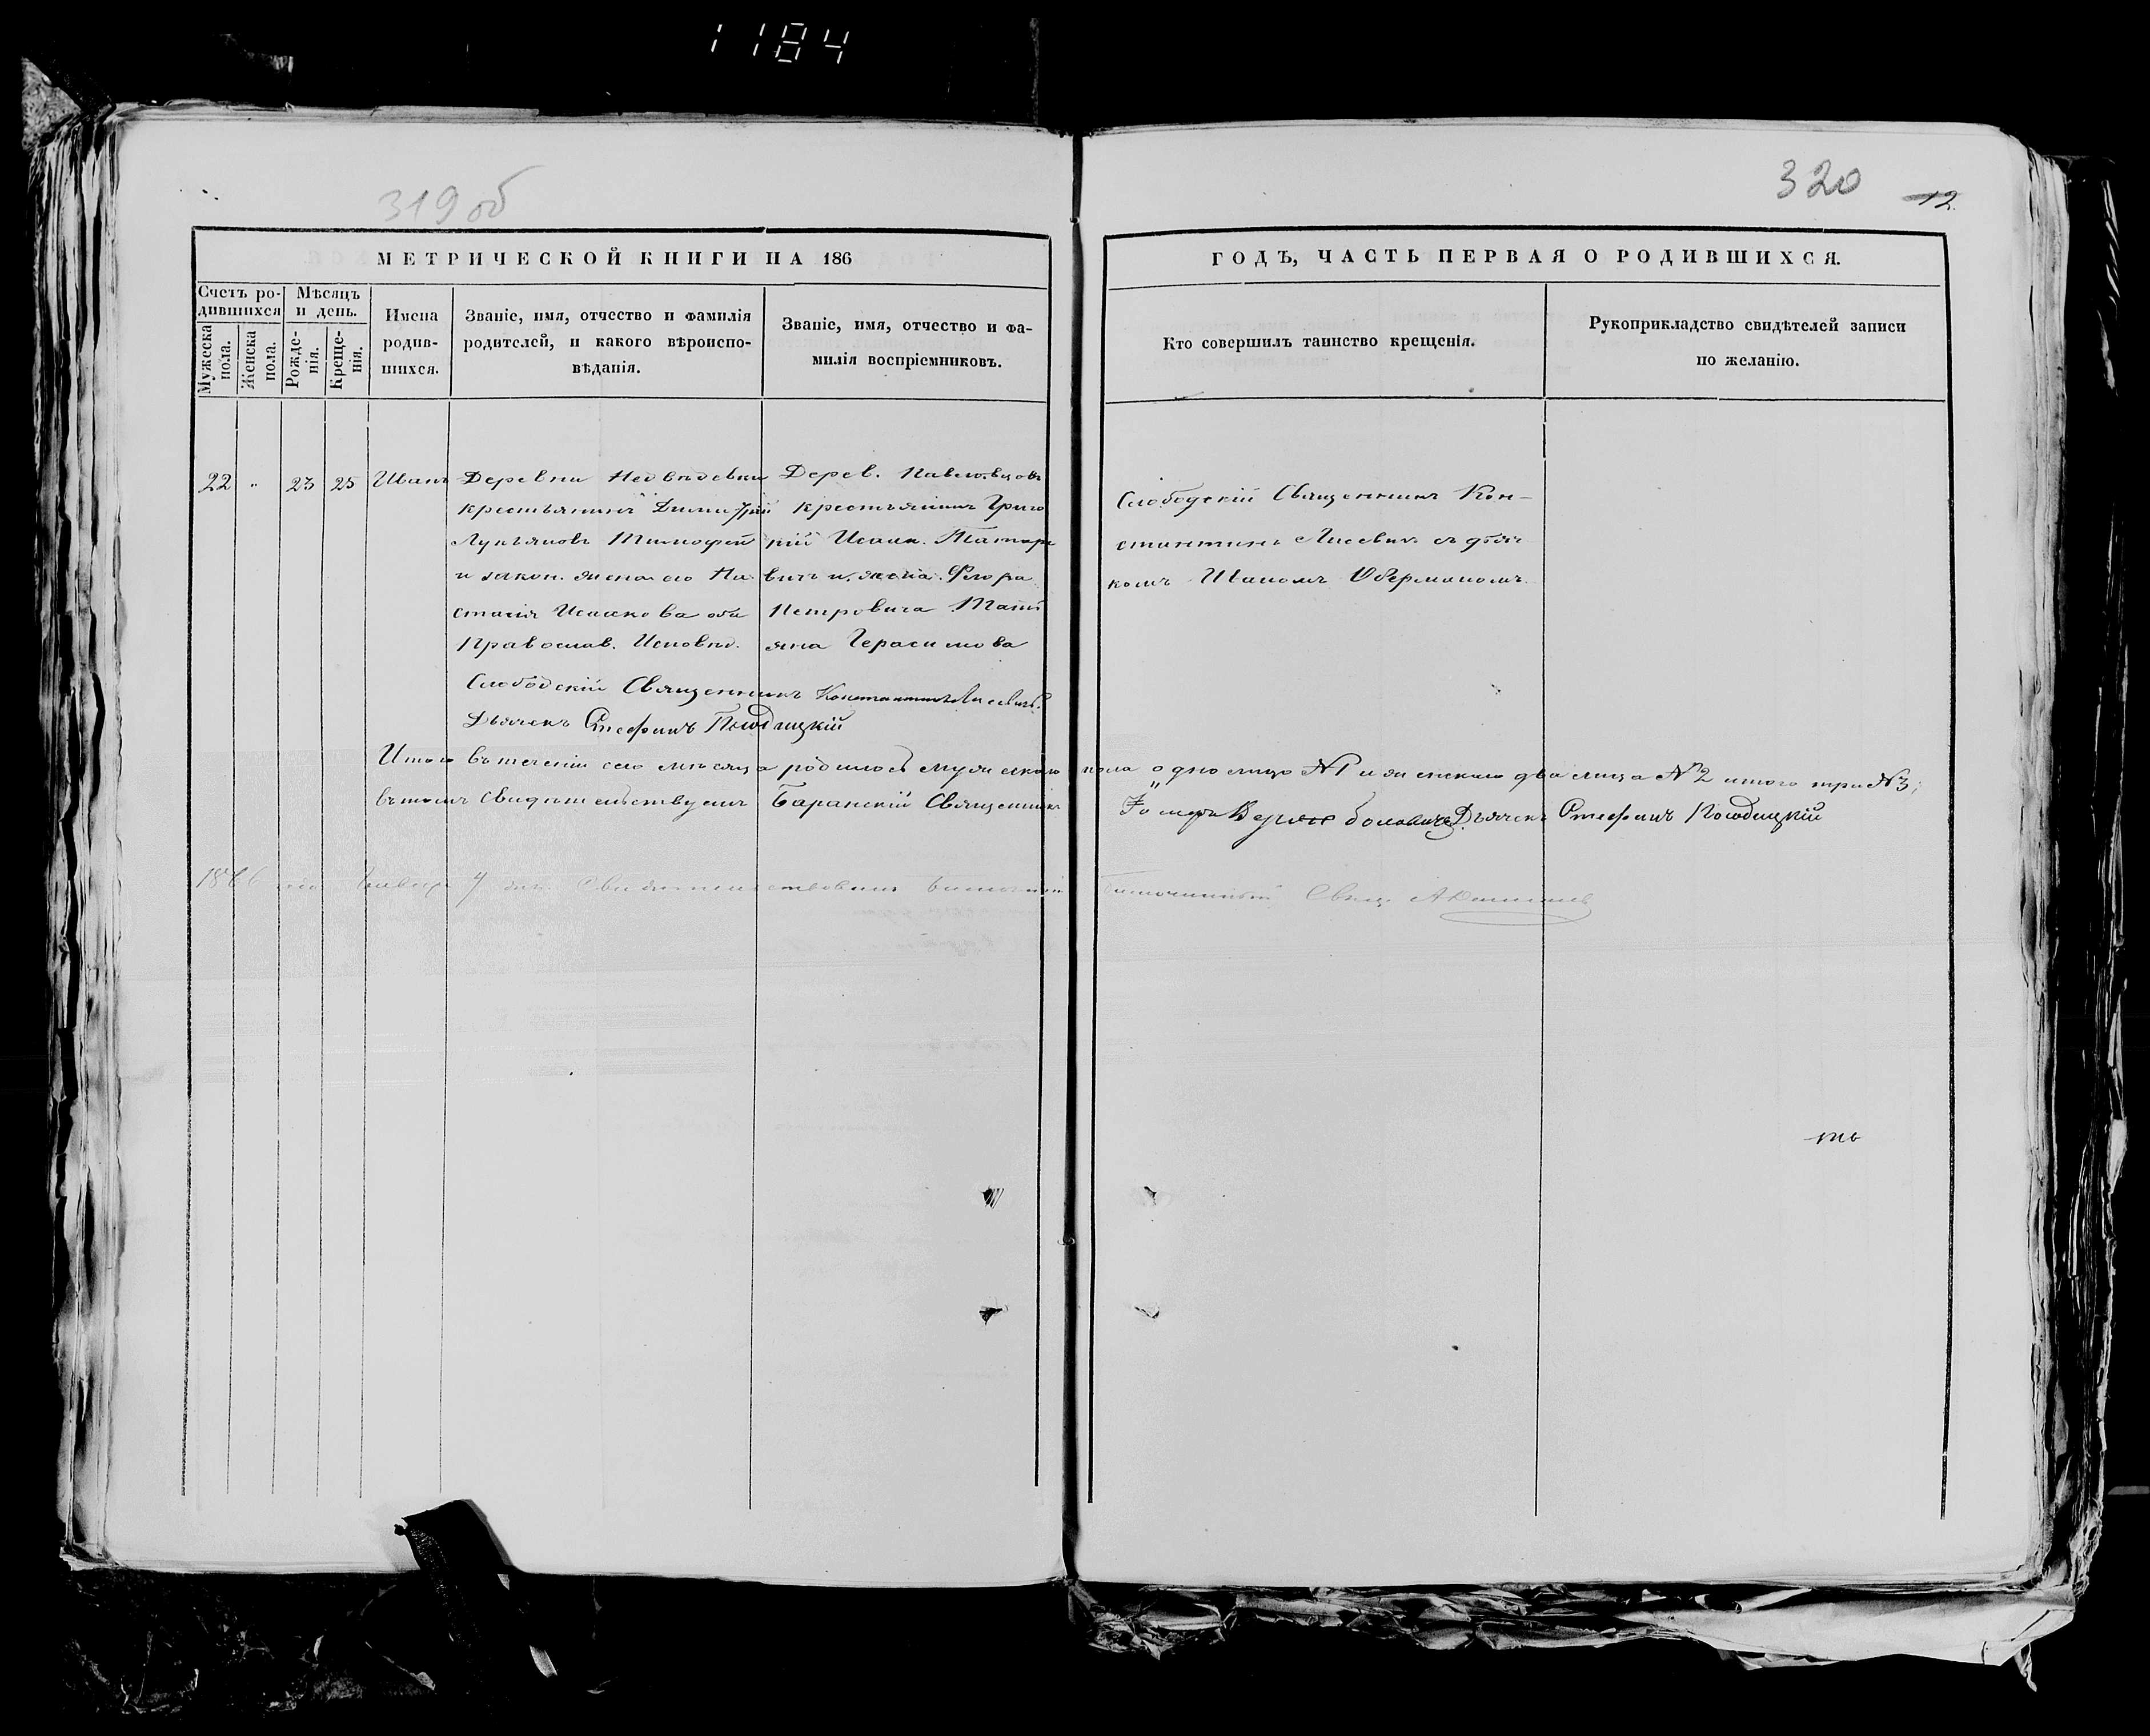 1184
319 об
320
12.
МЕТРИЧЕСКОЙ КНИГИ НА 186
ГОДЪ, ЧАСТЬ ПЕРВАЯ О РОДИВШИХСЯ.
Счетъ ро-
дившихся
Мужеска пола.
Женска пола.
Мѣсяцъ
и день.
Рожде-
нія.
Креще-
нія.
Имена
родив-
шихся.
Званіе, имя, отчество и фамилія
родителей, и какого вѣроиспо-
вѣданія.
Званіе, имя, отчество и фа-
милія воспріемниковъ.
Кто совершилъ таинство крещенія.
Рукоприкладство свидѣтелей записи
по желанію.
22 " 23 25 Иванъ
Деревни Медвѣдевки
крестьянинъ Димитрій
Лукьяновъ Тимофей
и закон. жена его На
стасія Исаакова оба
Православ. Исповѣд.
Дерев.
крестьянинъ Григо
рій Исаак.
вичъ и жена Флора
Петровича Тать
яна Герасимова
Слободскій Священникъ Кон-
стантинъ Лисевичъ съ дьяч
комъ Иваномъ Оберманомъ
Слободскій Священникъ Константинъ Лисевичъ.
Дьячекъ Стефанъ
Итого въ теченіи сего мѣсяца родилось мужескаго пола одно лицо №1 и женскаго два лица №2 итого три №3;
въ томъ свидѣтельствуемъ Баранскій Священникъ Дьячекъ Стефанъ
1866 года Января 4 дня Свидѣтельствовалъ Благочинный Свящ.